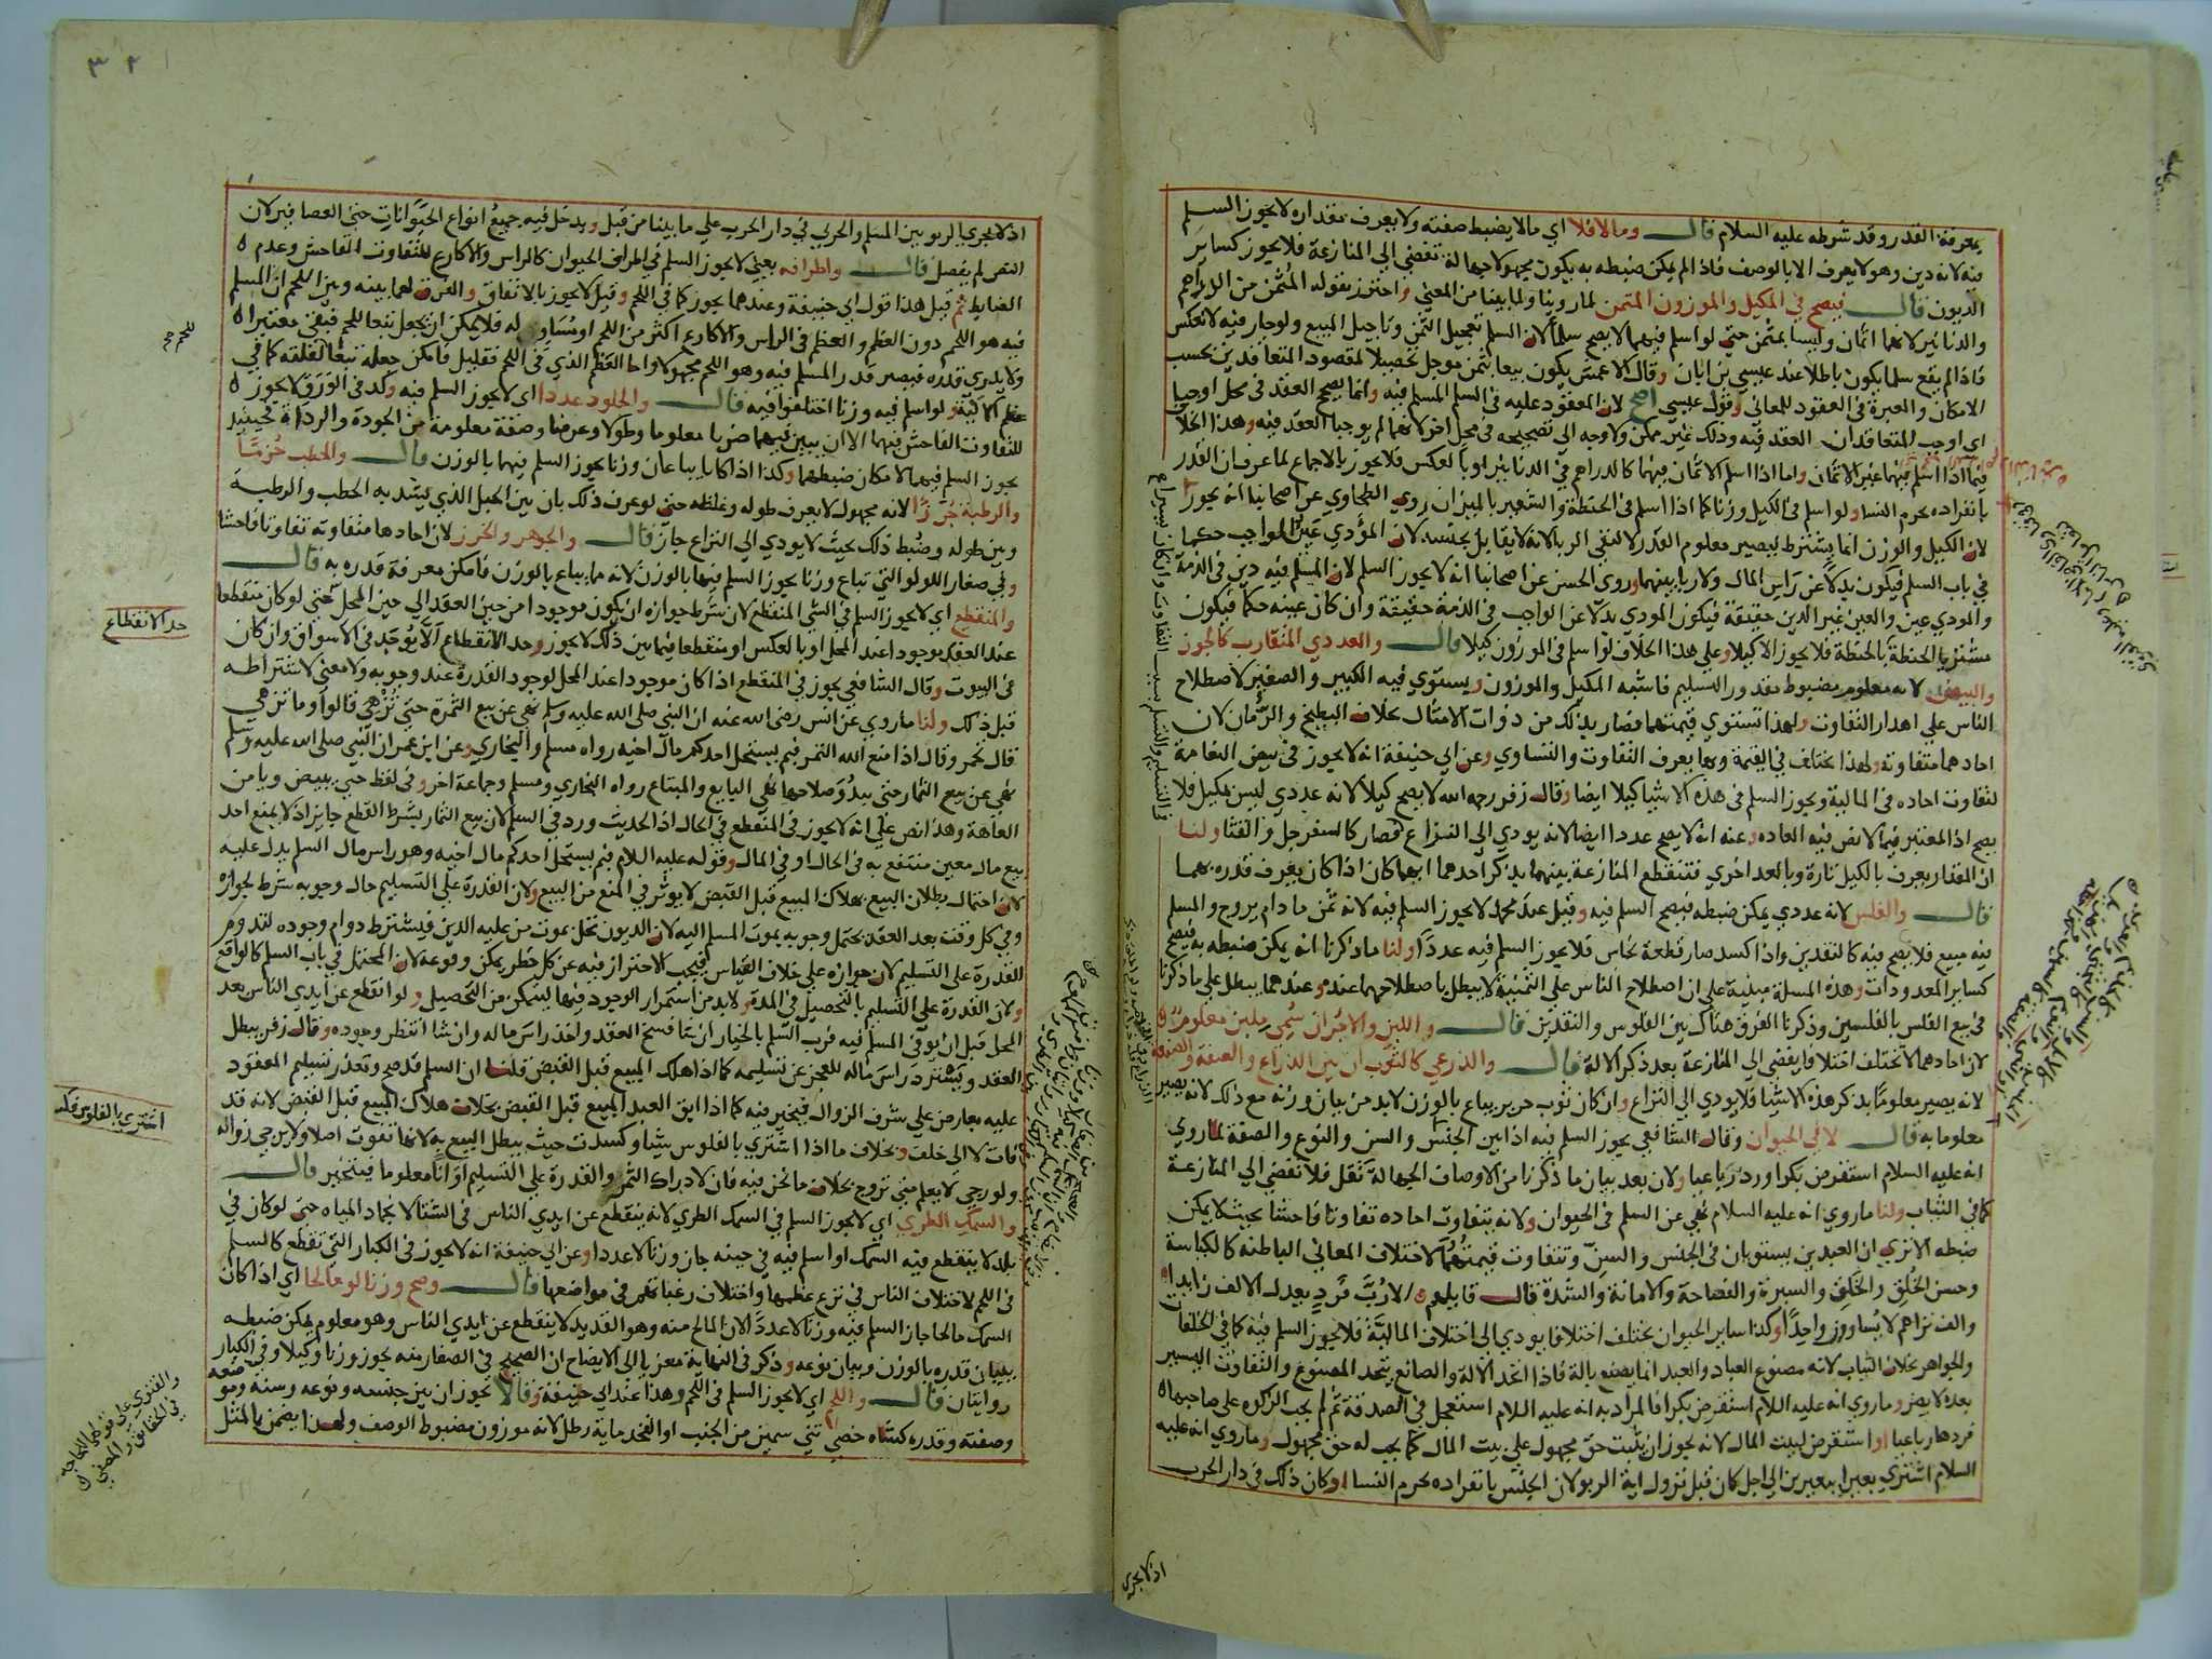 بمعرفة القدر وقد شرطه عليه السلام قال وما لا فلا اي ما لا يضبط صفته ولا يعرف مقداره لا يجوز السلم
فيه لانه دين وهو لا يعرف الا بالوصف فاذا لم يمكن ضبطه به يكون مجهولا جهالة تفضي الى المنازعة فلا يجوز كساير
الديون قال فيصح في المكيل والموزون المثمن لما روينا ولما بينا من المعنى واحترز بقوله المثمن من الدراهم
والدنانير لانهما اثمان وليسا بمثمن حتى لو اسلم فيهما لا يصح سلما لان السلم تعجيل الثمن وتاجيل المبيع ولو جاز فيه لانعكس
فاذا لم يقع سلما يكون باطلا عند عيسي بن ابان وقال الاعمش يكون بيعا بثمن موجل تحصيلا لمقصود المتعاقدين بحسب
الامكان والعبرة في العقود للمعاني وقول عيسي اصح لان المعقود عليه في السلم المسلم فيه وانما يصح العقد في محل اوجبا
اي اوجب المتعاقدان العقد فيه وذلك غير ممكن ولا وجه الى تصحيحه في محل اخر لانهما لم يوجبا العقد فيه وهذا الخلا
فيما اذا اسلم فيهما غير الاثمان واما اذا اسلم الاثمان فيهما كالدراهم في الدنانير او بالعكس فلا يجوز بالاجماع لما عرف ان القدر
بانفراده يحرم النسا ولو اسلم في الكيل وزنا كما اذا اسلم في الحنطة والشعير بالميزان روي الطحاوي عن اصحابنا انه يجوز
لان الكيل والوزن انما يشترط ليصير معلوم القدر لا لنفي الربا لانه لا يقابل بجنسه لان المؤدي عين الواجب حكما
في باب السلم فيكون بدلا عن راس المال ولا ربا بينهما وروي الحسن عن اصحابنا انه لا يجوز السلم لان المسلم فيه دين في الذمة
والمودي عين والعين غير الدين حقيقة فيكون المودي بدلا عن الواجب في الذمة حقيقة وان كان عينه حكما فيكون
مشتريا الحنطة بالحنطة فلا يجوز الا كيلا وعلى هذا الخلاف لو اسلم في الموزون كيلا قال والعددي المتقارب كالجوز
والبيض لانه معلوم مضبوط مقدور التسليم فاشبه المكيل والموزون ويستوي فيه الكبير والصغير لاصطلاح
الناس على اهدار التفاوت ولهذا تستوي قيمتهما فصار بذلك من ذوات الامثال بخلاف البطيخ والرمان لان
احادهما متفاوتة ولهذا يختلف في القيمة وبها يعرف التفاوت والتساوي وعن ابي حنيفة انه لا يجوز في بيض النعامة
لتفاوت احاده في المالية ويجوز السلم في هذه الاشيا كيلا ايضا وقال زفر رحمه الله لا يصح كيلا لانه عددي ليس بمكيل فلا
يصح اذ المعتبر فيما لا نص فيه العاده وعنه انه لا يصح عددا ايضا لانه يودي الى النزاع فصار كالسفرجل والقثا ولنا
ان المقدار يعرف بالكيل تارة وبالعد اخرى فتنقطع المنازعة بينهما بذكر احدهما ايهما كان اذا كان يعرف قدره بهما
قال والفلس لانه عددي يمكن ضبطه فيصح السلم فيه وقيل عند محمد لا يجوز السلم فيه لانه ثمن ما دام يروج والمسلم
فيه مبيع فلا يصح فيه كالنقدين واذا كسد صار قطعة نحاس فلا يجوز السلم فيه عددا ولنا ما ذكرنا انه يمكن ضبطه به فيصح
كساير المعدودات وهذه المسلة مبنية على ان اصطلاح الناس على الثمنية لا يبطل باصطلاحهما عنده وعندهما يبطل على ما ذكرنا
في بيع الفلس بالفلسين وذكرنا الفرق هناك بين الفلوس والنقدين قال واللبن والاجر ان سمي ملبن معلوم
لان احادهما لا تختلف اختلافا يفضي الى المنازعة بعد ذكر الالة قال والذرعي كالثوب ان بين الذراع والصفة والصنعة
لانه يصير معلوما بذكر هذه الاشيا فلا يودي الى النزاع وان كان ثوب حرير يباع بالوزن لا بد من بيان وزنه مع ذلك لانه يصير
معلوما به قال لا في الحيوان وقال الشافعي يجوز السلم فيه اذا بين الجنس والسن والنوع والصفة لما روي
انه عليه السلام استقرض بكرا ورد رباعيا ولان بعد بيان ما ذكرنا من الاوصاف الجهالة تقل فلا تفضي الى المنازعة
كما في الثياب ولنا ما روي انه عليه السلام نهى عن السلم في الحيوان ولانه يتفاوت احاده تفاوتا فاحشا بحيث لا يمكن
ضبطه الا ترى ان العبدين يستويان في الجنس والسن وتتفاوت قيمتهما لاختلاف المعاني الباطنة كالكياسة
وحسن الخلق والخلق والسيرة والفصاحة والامانة والشدة قال قايلهم الا رب فرد يعدل الالف زايدا
والف تراهم لا يساوون واحدا وكذا ساير الحيوان يختلف اختلافا يودي الى اختلاف المالية فلا يجوز السلم فيه كما في الخلفات
والجواهر بخلاف الثياب لانه مصنوع العباد والعبد انما يصنع بالة فاذا اتحد الالة والصانع يتحد المصنوع والتفاوت اليسير
بعده لا يضر وما روي انه عليه السلام استقرض بكرا فالمراد به انه عليه السلام استعجل في الصدقة ثم لم يجب الزكوة على صاحبها
فردها رباعيا او استقرض لبيت المال لانه يجوز ان يثبت حق مجهول على بيت المال كما يجب له حق مجهول وما روي انه عليه
السلام اشترى بعيرا ببعيرين الى اجل كان قبل نزول اية الربو لان الجنس بانفراده يحرم النسا او كان ذلك في دار الحرب
اذ لا يجري
٣٢
اذ لا يجري الربو بين المسلم والحربي في دار الحرب على ما بينا من قبل ويدخل فيه جميع انواع الحيوانات حتى العصافير لان
النص لم يفصل قال واطرافه يعني لا يجوز السلم في اطراف الحيوان كالراس والاكارع للتفاوت الفاحش وعدم
الضابط ثم قيل هذا قول ابي حنيفة وعندهما يجوز كما في اللحم وقيل لا يجوز بالاتفاق والفرق لهما بينه وبين اللحم ان المسلم
فيه هو اللحم دون العظم والعظم في الراس والاكارع اكثر من اللحم او مساو له فلا يمكن ان يجعل تبعا للحم فبقي معتبرا
ولا يدري قدره فيصير قدر المسلم فيه وهو اللحم مجهولا واما العظم الذي في اللحم فقليل فامكن جعله تبعا لقلته كما في
عظم الالية ولو اسلم فيه وزنا اختلفوا فيه قال والجلود عددا اي لا يجوز السلم فيه وكذا في الورق لا يجوز
للتفاوت الفاحش فيهما الا ان يبين فيهما ضربا معلوما وطولا وعرضا وصفة معلومة من الجودة والرداة فحينئذ
يجوز السلم فيهما لامكان ضبطهما وكذا اذا كانا يباعان وزنا يجوز السلم فيهما بالوزن قال والحطب حزما
والرطبة جرزا لانه مجهول لا يعرف طوله وغلظه حتى لو عرف ذلك بان بين الحبل الذي يشد به الحطب والرطبة
وبين طوله وضبط ذلك بحيث لا يودي الى النزاع جاز قال والجوهر والخرز لان احادها متفاوته تفاوتا فاحشا
وفي صغار اللولو التي تباع وزنا يجوز السلم فيها بالوزن لانه مما يباع بالوزن فامكن معرفة قدره به قال
والمنقطع اي لا يجوز السلم في الشي المنقطع لان شرط جوازه ان يكون موجودا من حين العقد الى حين المحل حتى لو كان منقطعا
عند العقد موجودا عند المحل او بالعكس او منقطعا فيما بين ذلك لا يجوز وحد الانقطاع الا يوجد في الاسواق وان كان
في البيوت وقال الشافعي يجوز في المنقطع اذا كان موجودا عند المحل لوجود القدرة عند وجوبه ولا معنى لاشتراطه
قبل ذلك ولنا ما روي عن انس رضى الله عنه ان النبي صلى الله عليه وسلم نهى عن بيع الثمرة حتى تزهي قالوا وما تزهي
قال تحمر وقال اذا منع الله الثمر فبم يستحل احدكم مال اخيه رواه مسلم والبخاري وعن ابن عمر ان النبي صلى الله عليه وسلم
نهى عن بيع الثمار حتى يبدو صلاحها نهى البايع والمبتاع رواه البخاري ومسلم وجماعة اخر وفي لفظ حتى يبيض ويامن
العاهة وهذا نص على انه لا يجوز في المنقطع في الحال اذ الحديث ورد في السلم لان بيع الثمار بشرط القطع جايز اذ لا يمنع احد
بيع مال معين منتفع به في الحال او في المال وقوله عليه السلام فبم يستحل احدكم مال اخيه وهو راس مال السلم يدل عليه
لان احتمال بطلان البيع بهلاك المبيع قبل القبض لا يوثر في المنع من البيع ولان القدرة على التسليم حال وجوبه شرط لجوازه
وفي كل وقت بعد العقد يحتمل وجوبه بموت المسلم اليه لان الديون تحل بموت من عليه الدين فيشترط دوام وجوده لتدوم
القدرة على التسليم لان جوازه على خلاف القياس فيجب الاحتراز فيه عن كل خطر يمكن وقوعه لان المحتمل في باب السلم كالواقع
ولان القدرة على التسليم بالتحصيل في المدة ولا بد من استمرار الوجود فيها ليتمكن من التحصيل ولو انقطع عن ايدي الناس بعد
المحل قبل ان يوفي المسلم فيه فرب السلم بالخيار ان شا فسخ العقد واخذ راس ماله وان شا انتظر وجوده وقال زفر يبطل
العقد ويسترد راس ماله للعجز عن تسليمه كما اذا هلك المبيع قبل القبض قلنا ان السلم قد صح وتعذر تسليم المعقود
عليه بعارض على شرف الزوال فيخير فيه كما اذا ابق العبد المبيع قبل القبض بخلاف هلاك المبيع قبل القبض لانه قد
فات لا الى خلف وبخلاف ما اذا اشترى بالفلوس شيا وكسدت حيث يبطل البيع به لانها تفوت اصلا ولا يرجى زواله
ولو رجي لا يعلم متى تروج بخلاف ما نحن فيه فان لادراك الثمر والقدرة على التسليم اوانا معلوما فيتخير قال
والسمك الطري اي لا يجوز السلم في السمك الطري لانه ينقطع عن ايدي الناس في الشتا لانجماد المياه حتى لو كان في
بلد لا ينقطع فيه السمك او اسلم فيه في حينه جاز وزنا لا عددا وعن ابي حنيفة انه لا يجوز في الكبار التي تقطع كالسلم
في اللحم لاختلاف الناس في نزع عظمها واختلاف رغباتهم في مواضعها قال وصح وزنا لو مالحا اي اذا كان
السمك مالحا جاز السلم فيه وزنا لا عددا لان المالح منه وهو القديد لا ينقطع عن ايدي الناس وهو معلوم يمكن ضبطه
ببيان قدره بالوزن وبيان نوعه وذكر في النهاية معزيا الى الايضاح ان الصحيح في الصغار منه يجوز وزنا وكيلا وفي الكبار
روايتان قال واللحم اي لا يجوز السلم في اللحم وهذا عند ابي حنيفة وقالا يجوز ان بين جنسه ونوعه وسنه وموضعه
وصفته وقدره كشاه خصي ثني سمين من الجنب او الفخذ ماية رطل لانه موزون مضبوط الوصف ولهذا يضمن بالمثل
حد الانقطاع
اشترى بالفلوس فكسد
والفتوى على قولهما للحاجة
في الحقايق والمصفى